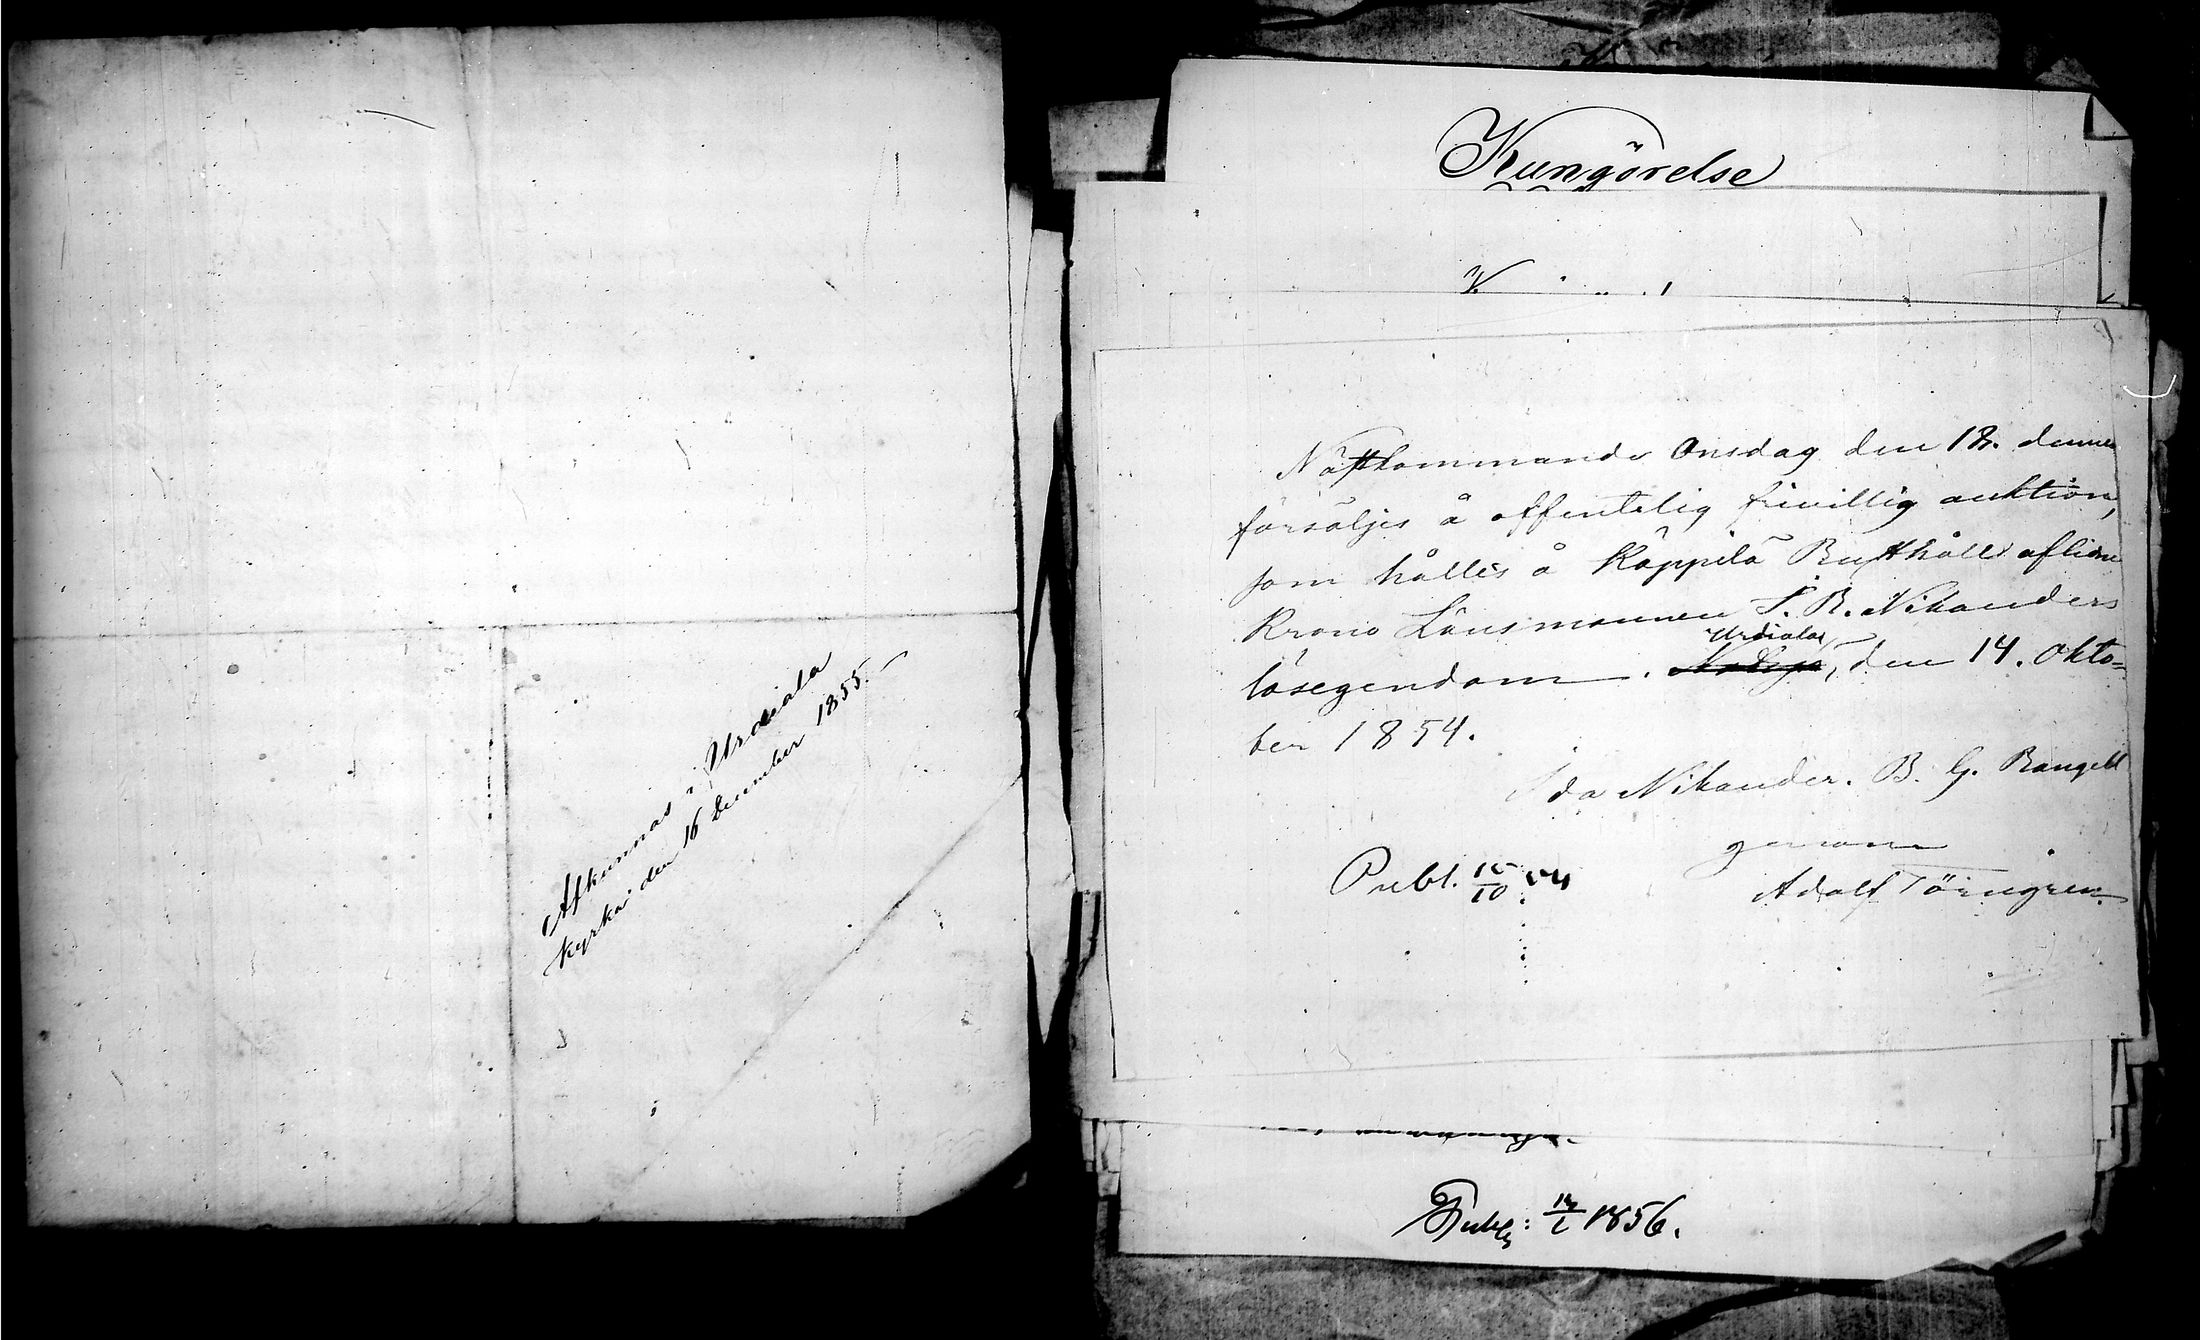 Afkunnas i Urdiala
kyrka den 16 December 1855.
Kungörelse
Nästkommande Onsdag den 18. dennes
försäljes å offentelig frivillig auktion,
som hålles å Käppilä Rusthåll aflidne
Krono Länsmannen Nikanders
Urdiala
lösegendom. den 14. Okto=
ber 1854.
Ida Nikander. B. G. Rangell
genom
Adolf Törngren
Publ. 15/10 54
Publ: 1856.